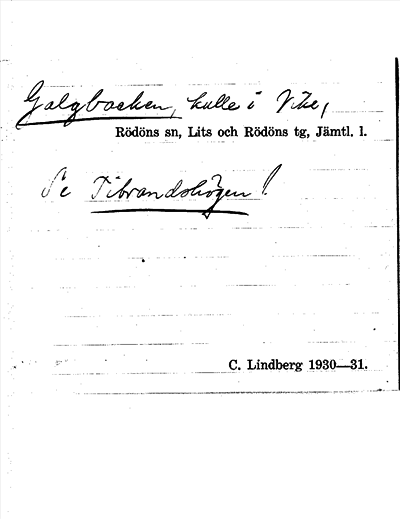 Galgbacken, kulle i Vike,
Rödöns sn, Lits och Rödöns tg, Jämtl. l.
Se Tibrandshögen!
C. Lindberg 1930—31.